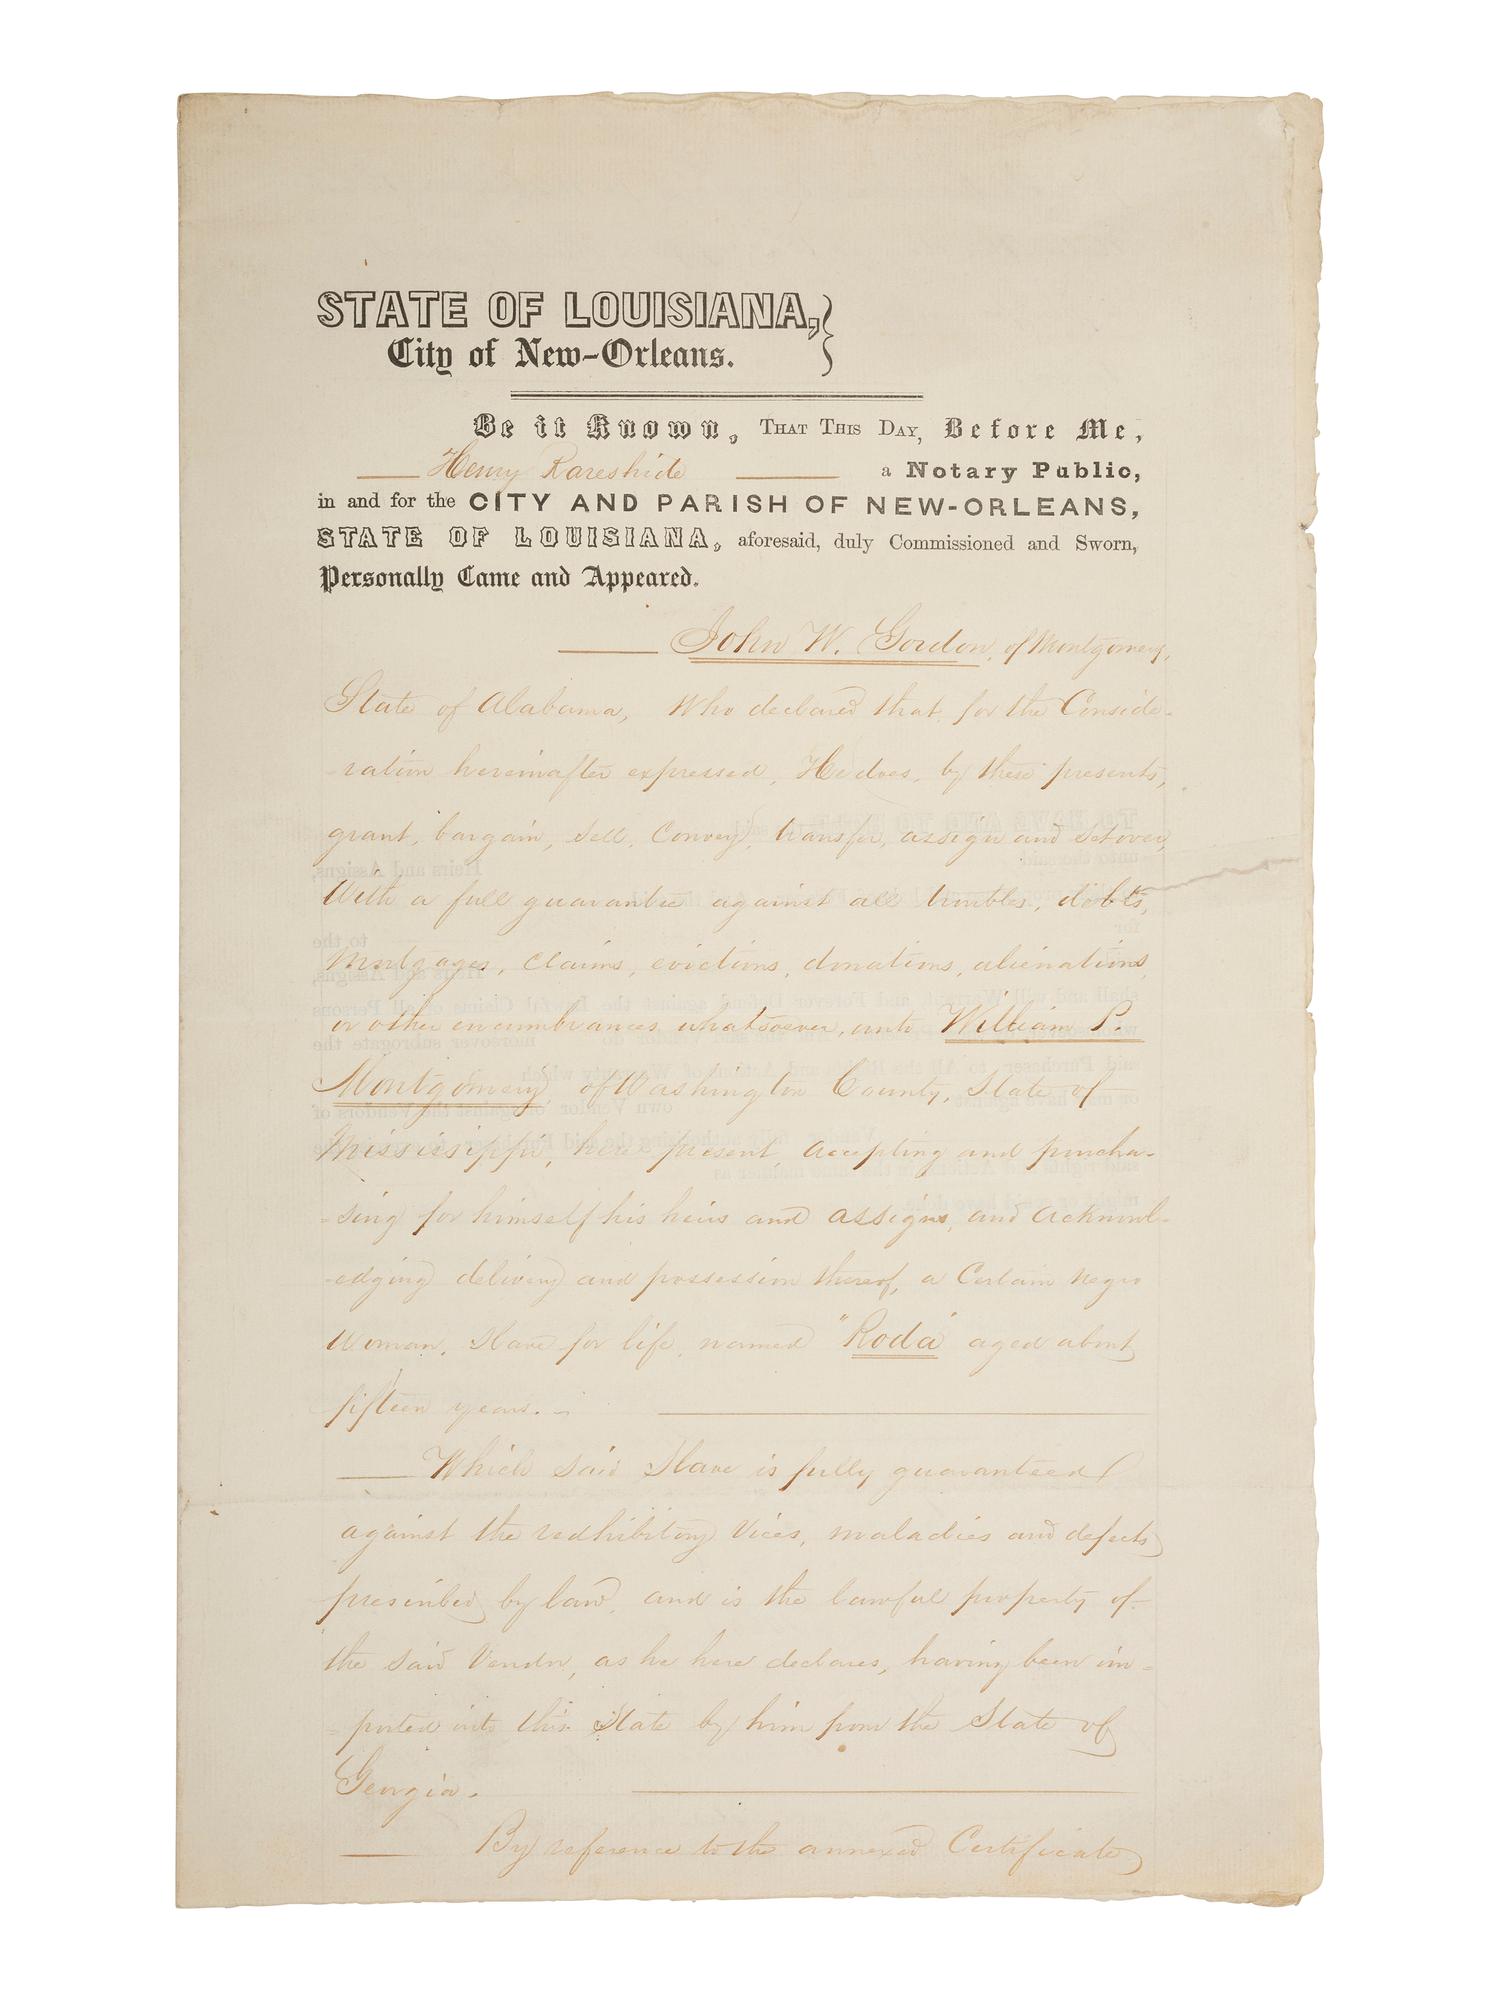 STATE OF LOUISIANA,
City of New-Orleans.
Be it Known, THAT THIS DAY, Before Me,
Henry Rareshide a Notary Public,
in and for the CITY AND PARISH OF NEW-ORLEANS,
STATE OF LOUISIANA, aforesaid, duly Commissioned and Sworn,
Personally Came and Appeared.
John W. Gordon, of Montgomery,
State of Alabama, Who declared that for the Conside-
ration hereinafter expressed, He does, by these presents,
grant, bargain, sell, Convey, transfer, assign and set over,
With a full guarantee against all troubles, debts,
Mortgages, Claims, evictions, donations, alienations,
or other incumbrances whatsoever, unto William P.
Montgomery, of Washington County, State of
Mississippi, here present, accepting and purcha-
-sing for himself his heirs and assigns, and acknowl-
-edging delivery and possession thereof, a Certain Negro
Woman, Slave for life, named "Roda" aged about
fifteen years.-
Which said Slave is fully guaranteed
against the redhibitory Vices, maladies and defects
prescribed by law, and is the lawful property of
the said Vendor, as he here declares, having been im-
-ported into this State by him from the State of
Georgia.
By reference to the annexed Certificate